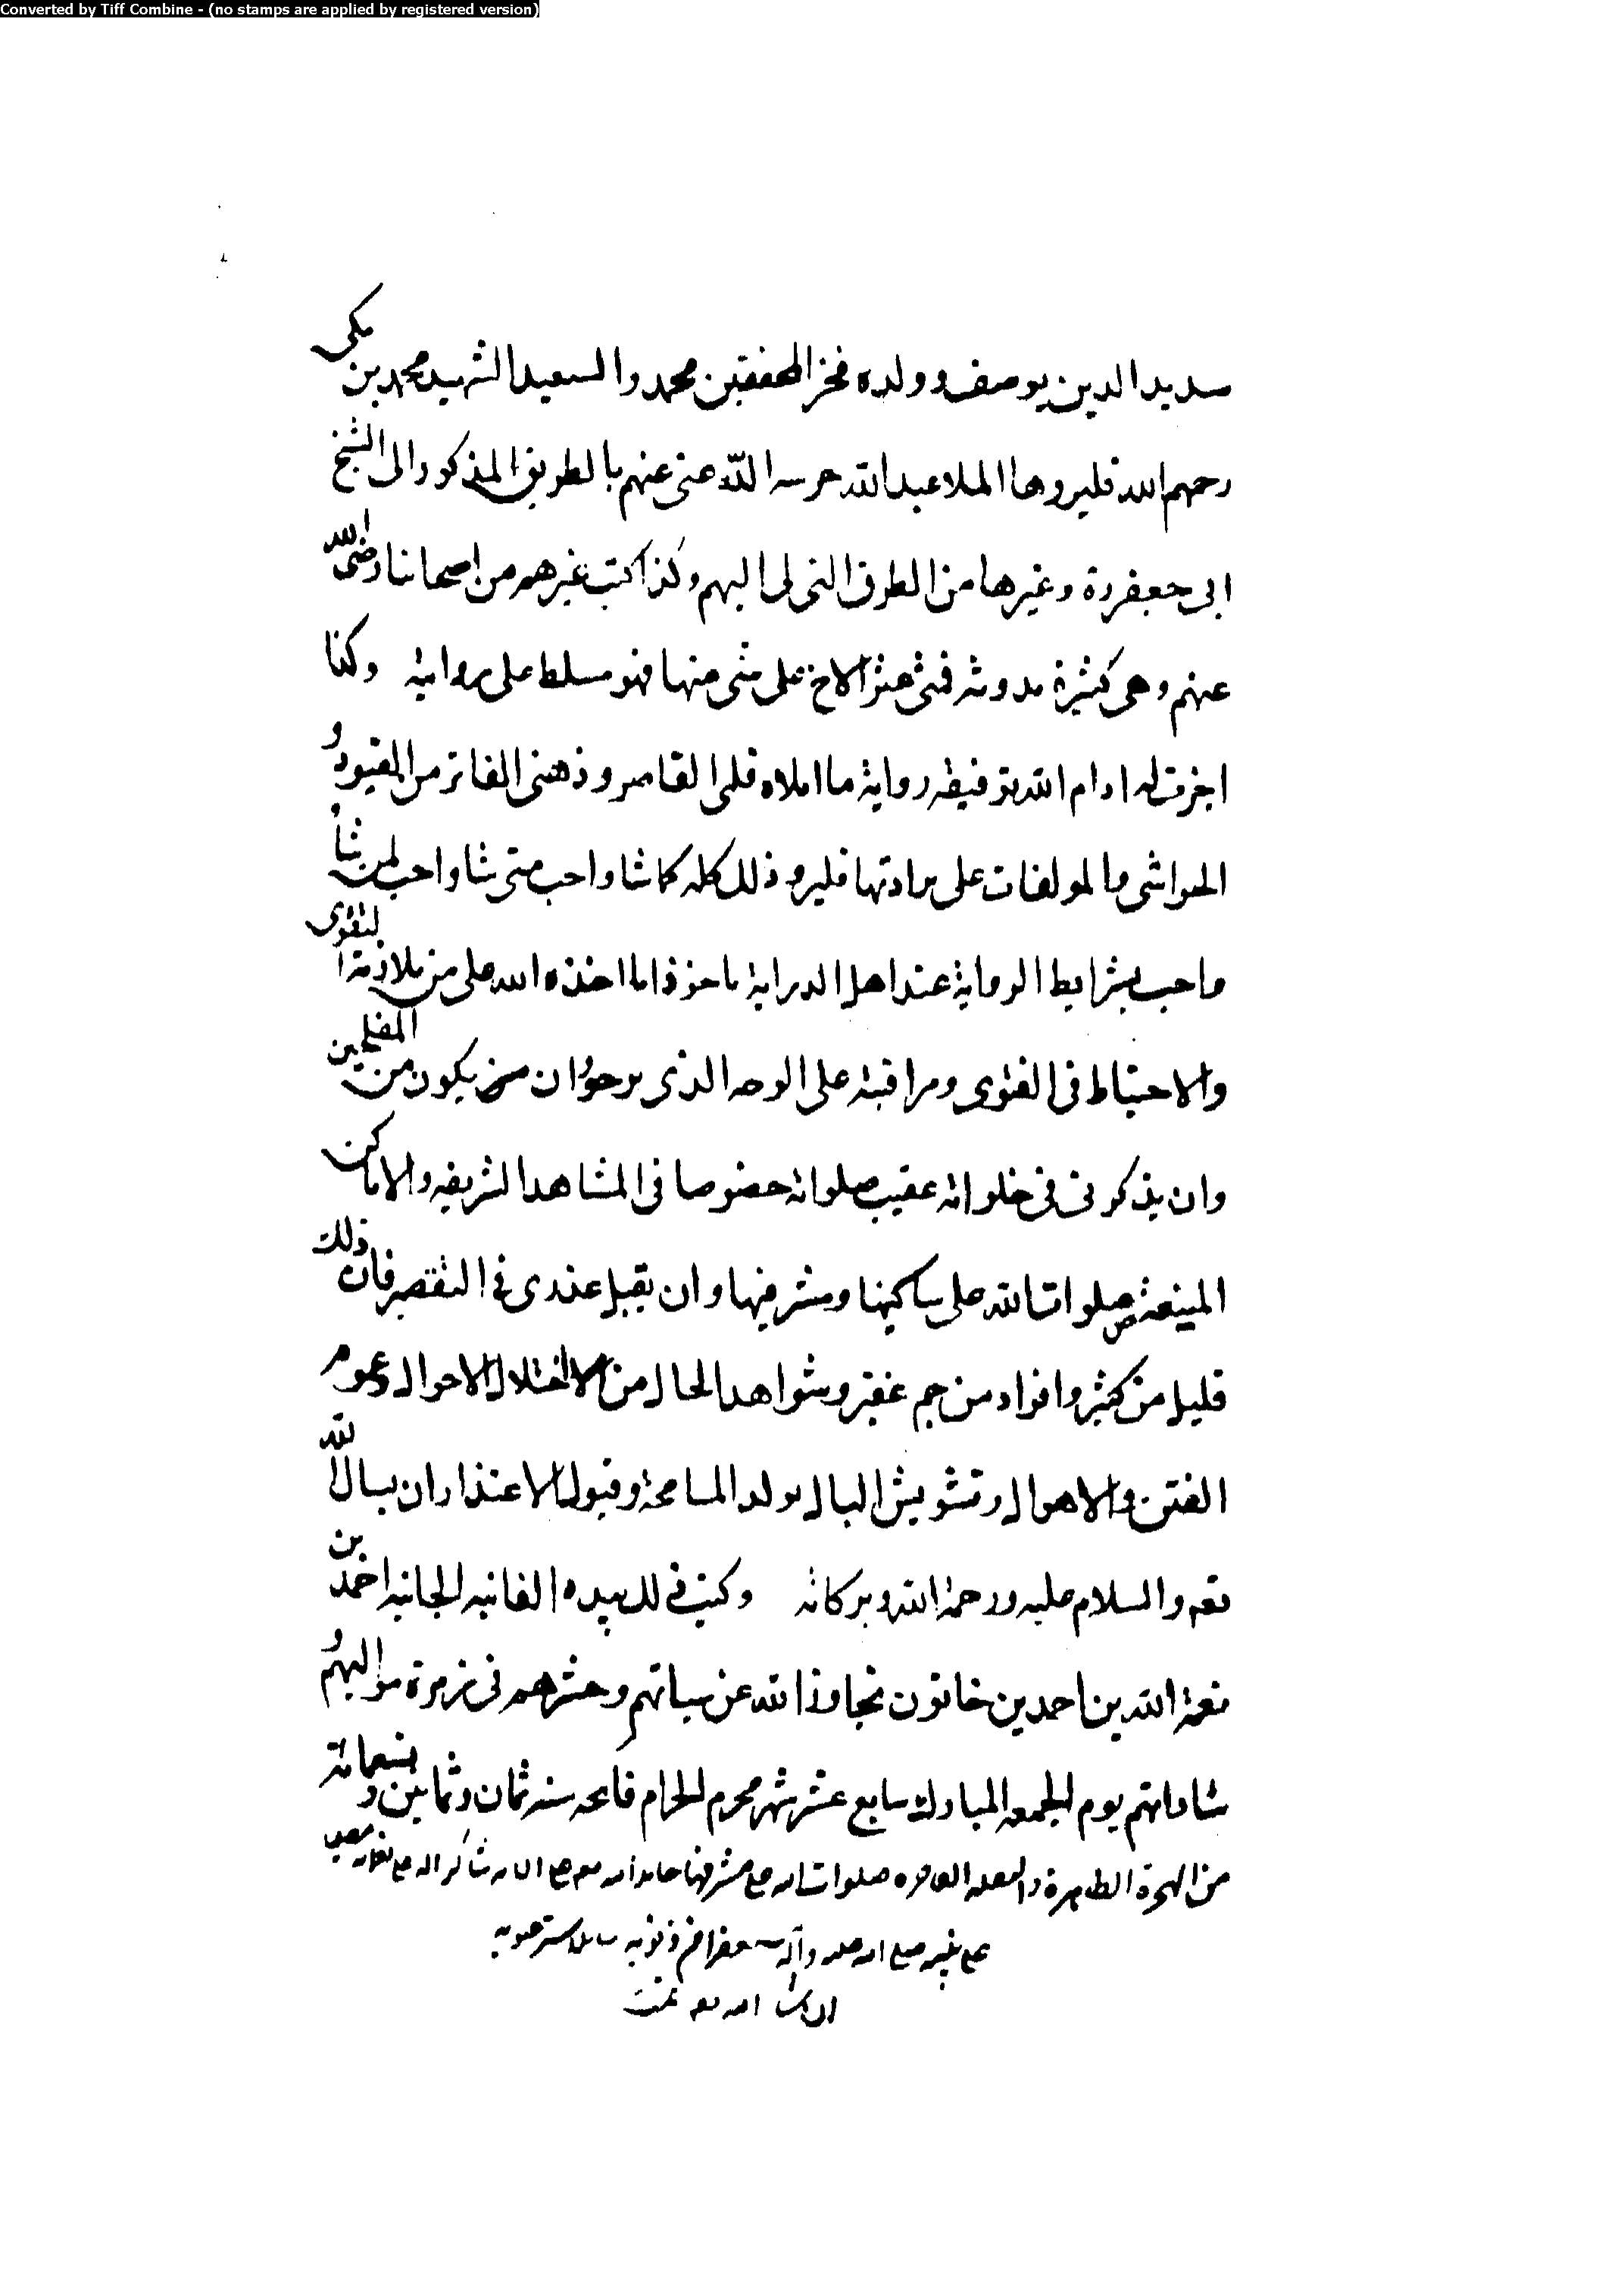 Converted by Tiff Combine - (no stamps are applied by registered version)
سديد الدين يوسف وولده فخر المحققين محمد والسعيد الشهيد محمد بن مكي
رحمهم الله فليروها الملا عبد الله حرسه الله عني عنهم بالطريق المذكور الى الشيخ
ابي جعفر ره وغيرها من الطرق التي لي اليهم وكذا كتب غيرهم من اصحابنا رضى الله
عنهم وهى كثيرة مدونه فمتى عثر الاخ على شى منها فهو مسلط على روايته وكنا
اجزت له ادام الله توفيقه رواية ما املاه قلمى القاصر وذهنى الفاتر من القيود و
الحواشى والمولفات على برادتها فليرو ذلك كله كما شا واحب متى شا واحب لمن شاء
واحب بشرايط الرواية عند اهل الدراية ماخوذا ما اخذه الله على من ملازمة التقوى
والاحتياط فى الفتوى ومراقبته على الوجه الذى يرجوا ان يكون من المفلحين
وان يذكرنى فى خلواته عقيب صلواته خصوصا فى المشاهد الشريفه والاماكن
المنيعة صلوات الله على ساكنيها ومشرفيها وان يقبل عذرى في التقصير فان ذلك
قليل من كثير وافراد من جم غفير وشواهد الحال من اختلال الاحوال وعموم
الفتن والاهوال وتشويش البال يولد المسامحة وقبول الاعتذار ان يسال الله
تعم والسلام عليه ورحمة الله وبركاته وكتب ذلك بيده الفانيه الجانيه احمد بن
نعمة الله بن احمد بن خاتون تجاوز الله عن سياتهم وحشرهم فى زمرة مواليهم و
ساداتهم يوم الجمعه المبارك سابع عشر شهر محرم الحرام فاتحه سنه ثمان وثمانين وتسعمائة
من الهجرة الطاهرة صلوات الله على مشرفها حامدا شاكرا
على نبيه صلى الله عليه وآله مستغفرا من ذنوبه
ان شاء الله تعم تمت